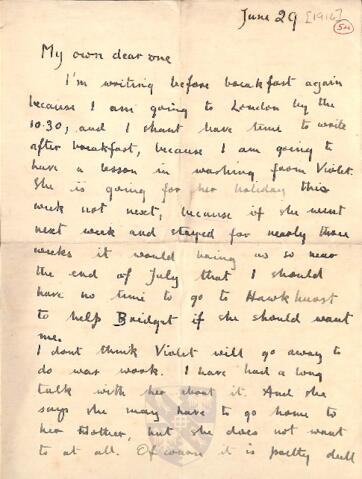 June 29 [1916]
54
My own dear one
I'm writing before breakfast again
because I am going to London by the
10.30, and I shant have time to write
after breakfast, because I am going to
have a lesson in washing from Violet.
She is going for her holiday this
week not next, because if she went
next week and stayed for nearly three
weeks it would bring us so near
the end of July that I should
have no time to go to Hawkhurst
to help Bridget if she should want
me.
I dont think Violet will go away to
do war work. I have had a long
talk with her about it. And she
says she may have to go home to
her Mother, but she does not want
to at all. Of course it is pretty dull